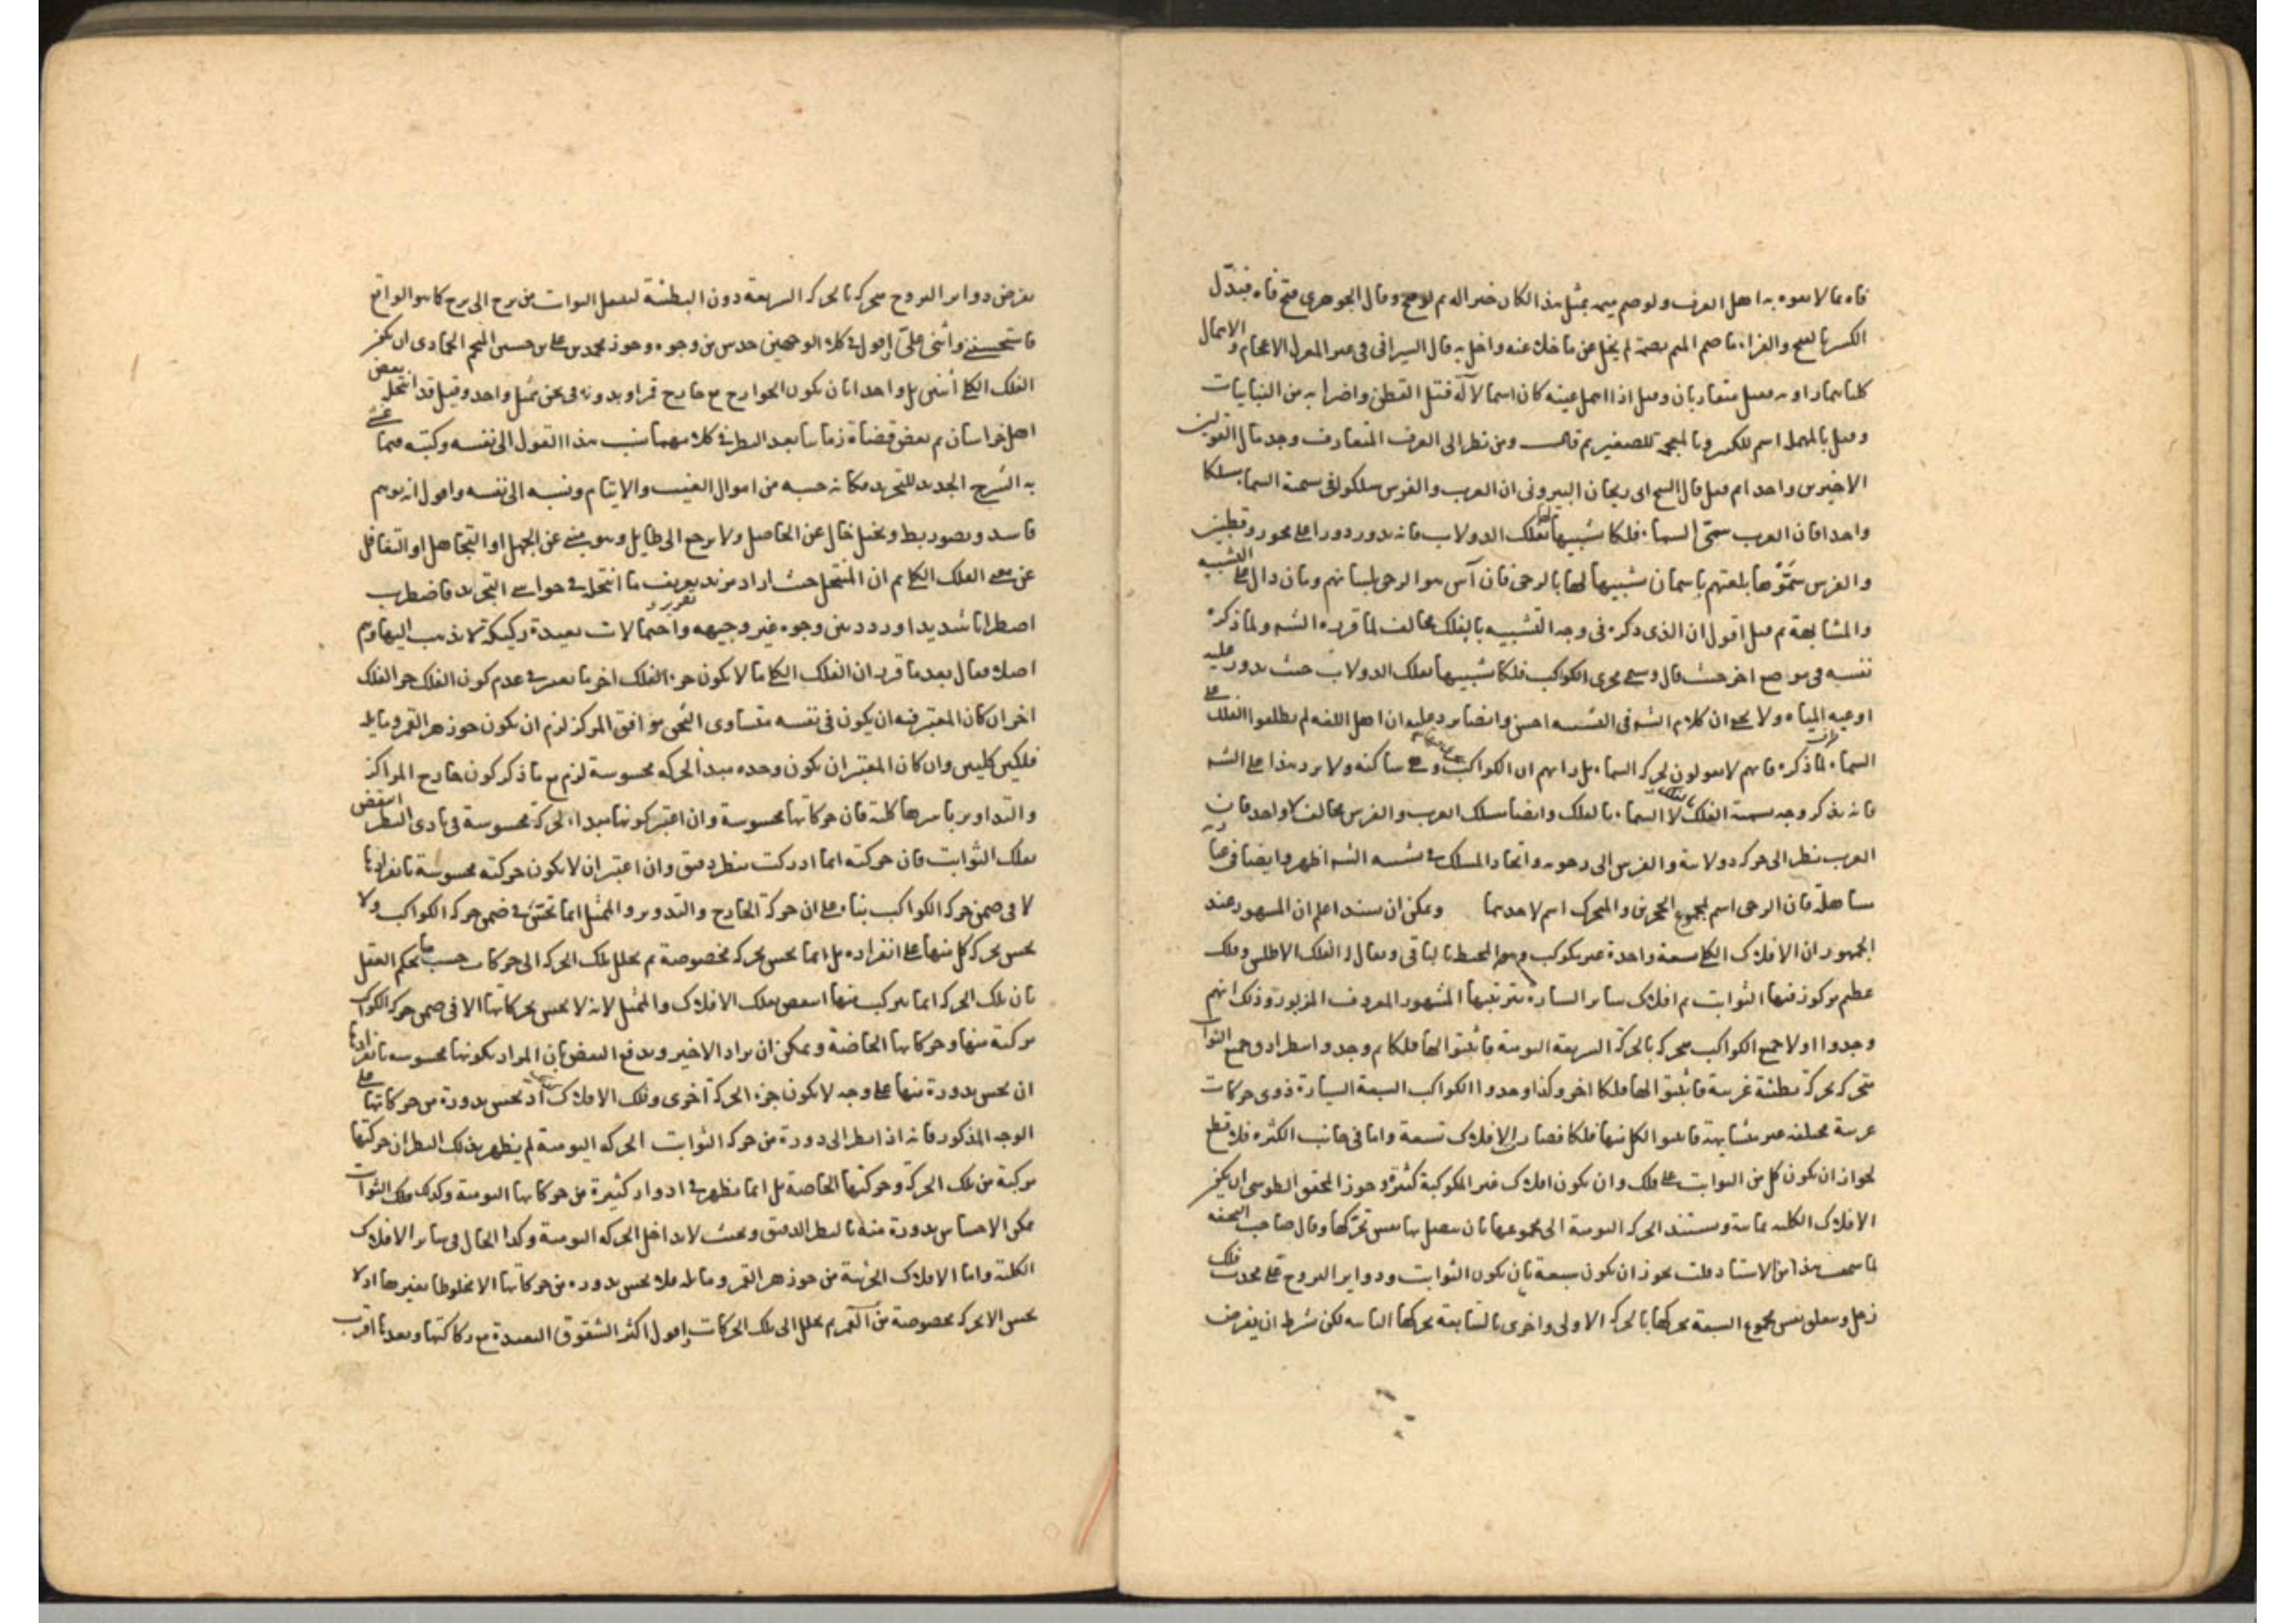 فاه مما لا يفوه به اهل العرف ولو صم ميمه بمثل هذا لكان خيرا له ثم وقال الجوهرى فتح فاه فتبدل
الكسر بالفتح والفراء ما ضم الميم لم يخل عن ماخذك عنه واخل به قال السيرافى فى الاعجام والاهمال
كلتاهما متقاربان وقيل اذا اهمل عينه كان اسما لآلة فتل القطن واضرابه من النباتات
وقيل بالمهملة اسم للكبير وبالمعجمة للصغير ثم قال ومن نظر الى العرف المتعارف وجد مآل القولين
الاخيرين واحدا ثم قيل قال الشيخ ابى ريحان البيرونى ان العرب والفرس سلكوا فى تسمية السماء مسلكا
واحدا فان العرب سمى السماء فلكا تشبيها لها بفلك الدولاب فانه يدور دورا على محور وقطبين
والفرس سموها بلغتهم باسمان تشبيها لها بالرحى فان آس هو الرحى بلسانهم ومان دال على التشبيه
والمشابهة ثم قيل اقول ان الذى ذكره فى وجه التشبيه بالفلك مخالف لما قرره الشه ولما ذكره
نفسه فى موضع اخر حيث قال وسمى مجرى الكوكب فلكا تشبيها بفلك الدولاب حيث يدور عليه
اوعية المياه ولا يخفى ان كلام الشه فى التشبيه احسن وايضا يرد عليه ان اهل اللغه لم يطلقوا الفلك على
السماء لما ذكره فانهم لا يقولون بحركة السماء بل رايهم ان الكواكب وهى ساكنة ولا يرد هذا على الشه
فانه يذكر وجه تسمية الفلك لا السماء بالفلك وايضا مسلك العرب والفرس مخالف لا واحد فان
العرب نظر الى حركة دولابية والفرس الى رحوية واتحاد المسلك فى تشبيه الشه اظهر وايضا فى عبارته
مساهلة فان الرحى اسم لمجموع الحجرين والمتحرك اسم لاحدهما وممكن ان اعلم ان المشهور عند
الجمهور ان الافلاك الكلية تسعة واحدة غير مكوكب وهو المحيط بالباقى ويقال له الفلك الاطلس وفلك
عظيم مركوز فيها الثوابت ثم افلاك ساير السيارة بترتيبها المشهور المعروف المزبورة وذلك انهم
وجدوا اولا جميع الكواكب متحركة بالحركة السريعة اليومية فاثبتوا لها فلكا ثم وجدوا جميع الثوابت
متحركة بحركة بطيئة غربية فاثبتوا لها فلكا اخر وكذا وجدوا الكواكب السبعة السيارة ذوى حركات
غربية مختلفة غير متشابهة فاثبتوا لكل منها فلكا فصار الافلاك تسعة واما فى جانب الكثرة فلا قطع
لجواز ان يكون كل من الثوابت على فلك وان يكون افلاك غير المكوكبة كثيرة وجوز المحقق الطوسى ان يكون
الافلاك الكلية ثمانية ويستند الحركة اليومية الى مجموعها بان يتصل بها نفس تحركها وقال صاحب التحفه
لما سمعت هذا من الاستاد قلت يجوز ان يكون سبعة بان يكون الثوابت ودواير البروج على محدب فلك
زحل ويتعلق نفس بمجموع السبعة يحركها بالحركة الاولى واخرى بالسابعة يحركها الثانية لكن بشرط ان يفرض
يفرض دواير البروج متحركة بالحركة السريعة دون البطيئة لينتقل الثوابت من برج الى برج كما هو الواقع
فاستحسنه واثنى علىّ اقول فى كلا الوجهين حدس من وجوه وجوز محمد بن على بن حسين المنجم الحمادى ان يكون
الفلك الكلى اثنين بل واحدا بان يكون الخوارج مع خارج قمر او بدونه فى ثخن ممثل واحد وقيل قد انتحل بعض
اهل خراسان ثم بعض قضاة زماننا بعد النظر فى كلامهما نسب هذا القول الى نفسه وكتبه
به الشرح الجديد للتجريد فكانه حسبه من اموال الغيب والايتام ونسبه الى نفسه واقول انه توهم
فاسد وتصور وتخيل خال عن الحاصل ولا يرجع الى طايل وهو مبنى عن الجهل او التجاهل او التغافل
عن معنى الفلك الكلى ثم ان المنتحل حيث اراد مزيد تعريف ما انتحله فى حواشى التجريد فاضطرب
اضطرابا شديدا وردد بين وجوه غير وجيهه واحتمالات بعيدة ركيكة لا يذهب اليها وهم
اصلا فقال بعد ما قرر ان الفلك الكلى ما لا يكون جزء الفلك اخر ما يعتبر فى عدم كون الفلك جزء الفلك
اخر ان كان المعتبر فيه ان يكون فى نفسه متساوى الثخن موافق المركز لزم ان يكون جوزهر القمر ومايله
فلكين كليين وان كان المعتبر ان يكون وحده مبدأ لحركة محسوسة لزم مع ما ذكر كون خارج المراكز
والتداوير باسرها كلية فان حركاتها محسوسة وان اعتبر كونها مبداء لحركة محسوسة فى بادى النظر انتقض
بفلك الثوابت فان حركته انما ادركت بنظر دقيق وان اعتبر ان لا يكون حركته محسوسة بانفرادها
لا فى ضمن حركة الكواكب بناء على ان حركة الخارج والتدوير والممثل انما تحقق فى ضمن حركة الكواكب ولا
يحس بحركة كل منها على انفراده بل انما يحس بحركة مخصوصة ثم يحلل تلك الحركة الى حركات حسب ما يحكم العقل
بان تلك الحركة انما يتركب منها انتقض بفلك الافلاك والممثل لانه لا يحس بحركاتها الا فى ضمن حركة الكواكب
مركبة منها وحركاتها الخاصة ويمكن ان يراد الاخير ويدفع النقض بان المراد بكونها محسوسة بانفرادها
ان يحس بدورة منها على وجه لا يكون جزء الحركة اخرى وفلك الافلاك قد يحس بدورة من حركاتها على
الوجه المذكور فانه اذا نظر الى دورة من حركة الثوابت الحركة اليومية لم يظهر بذلك النظر ان حركتها
مركبة من تلك الحركة وحركتها الخاصة بل انما يظهر فى ادوار كثيرة من حركاتها اليومية وكذلك فلك الثوابت
يمكن الاحساس بدورة منه بالنظر الدقيق وبحيث لا يداخل الحركة اليومية وكذا الحال فى ساير الافلاك
الكلية واما الافلاك الجزئية من جوزهر القمر ومايله فلا يحس بدورة من حركاتها الا مخلوطا بغيرها اذ لا
يحس الا بحركة مخصوصة من القمر ثم يحلل الى تلك الحركات واقول اكثر الشقوق البعيدة مع ركاكتها وبعدها اقرب